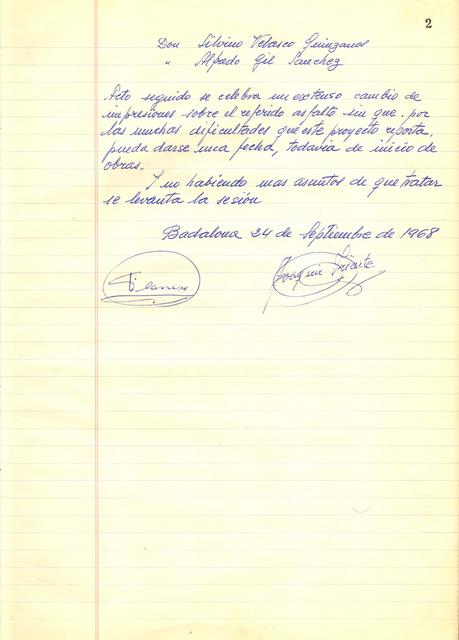 2
Don Silvino Velasco Quinzanos
" Alfredo Gil Sanchez
Acto seguido se celebra un extenso cambio de
impresiones sobre el referido asfalto sin que por
las muchas dificultades que este proyecto reporta,
pueda darse una fecha, todavia de inicio de
obras.
Y no habiendo mas asuntos de que tratar
se levanta la sesión
Badalona 24 de Septiembre de 1968
Joaquin Iriarte